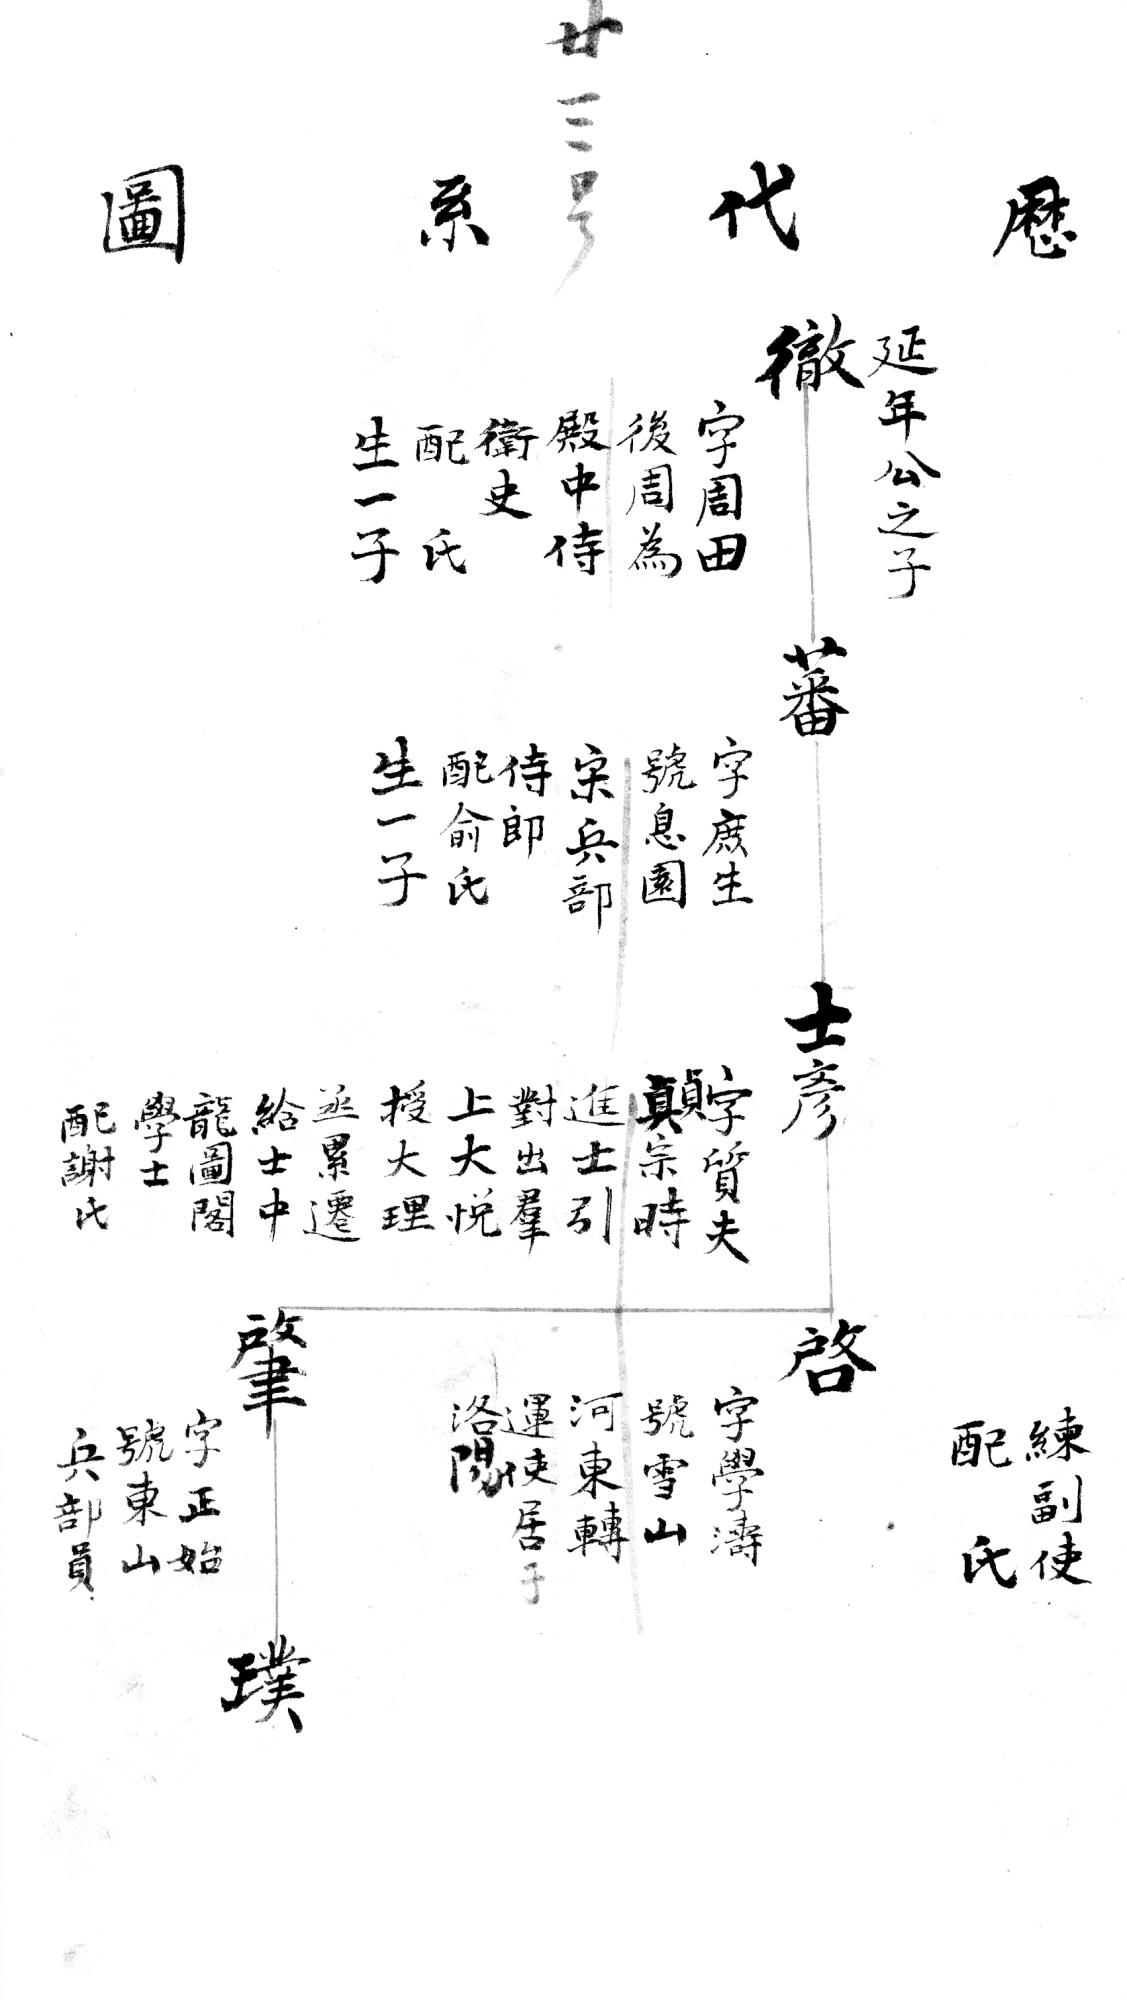 廿三号
歷代系圖
延年公之子
徹
字周田
後周為
殿中侍
衛史
配 氏
生一子
蕃
字庶生
號息園
宋兵部
侍郎
配俞氏
生一子
士彥
字質夫
真宗時
進士引
對出羣
上大悅
授大理
丞累遷
給士中
龍圖閣
學士
配謝氏
啓
練副使
配 氏
字學濤
號雪山
河東轉
運使居子
洛陽
肇
字正始
號東山
兵部員
璞